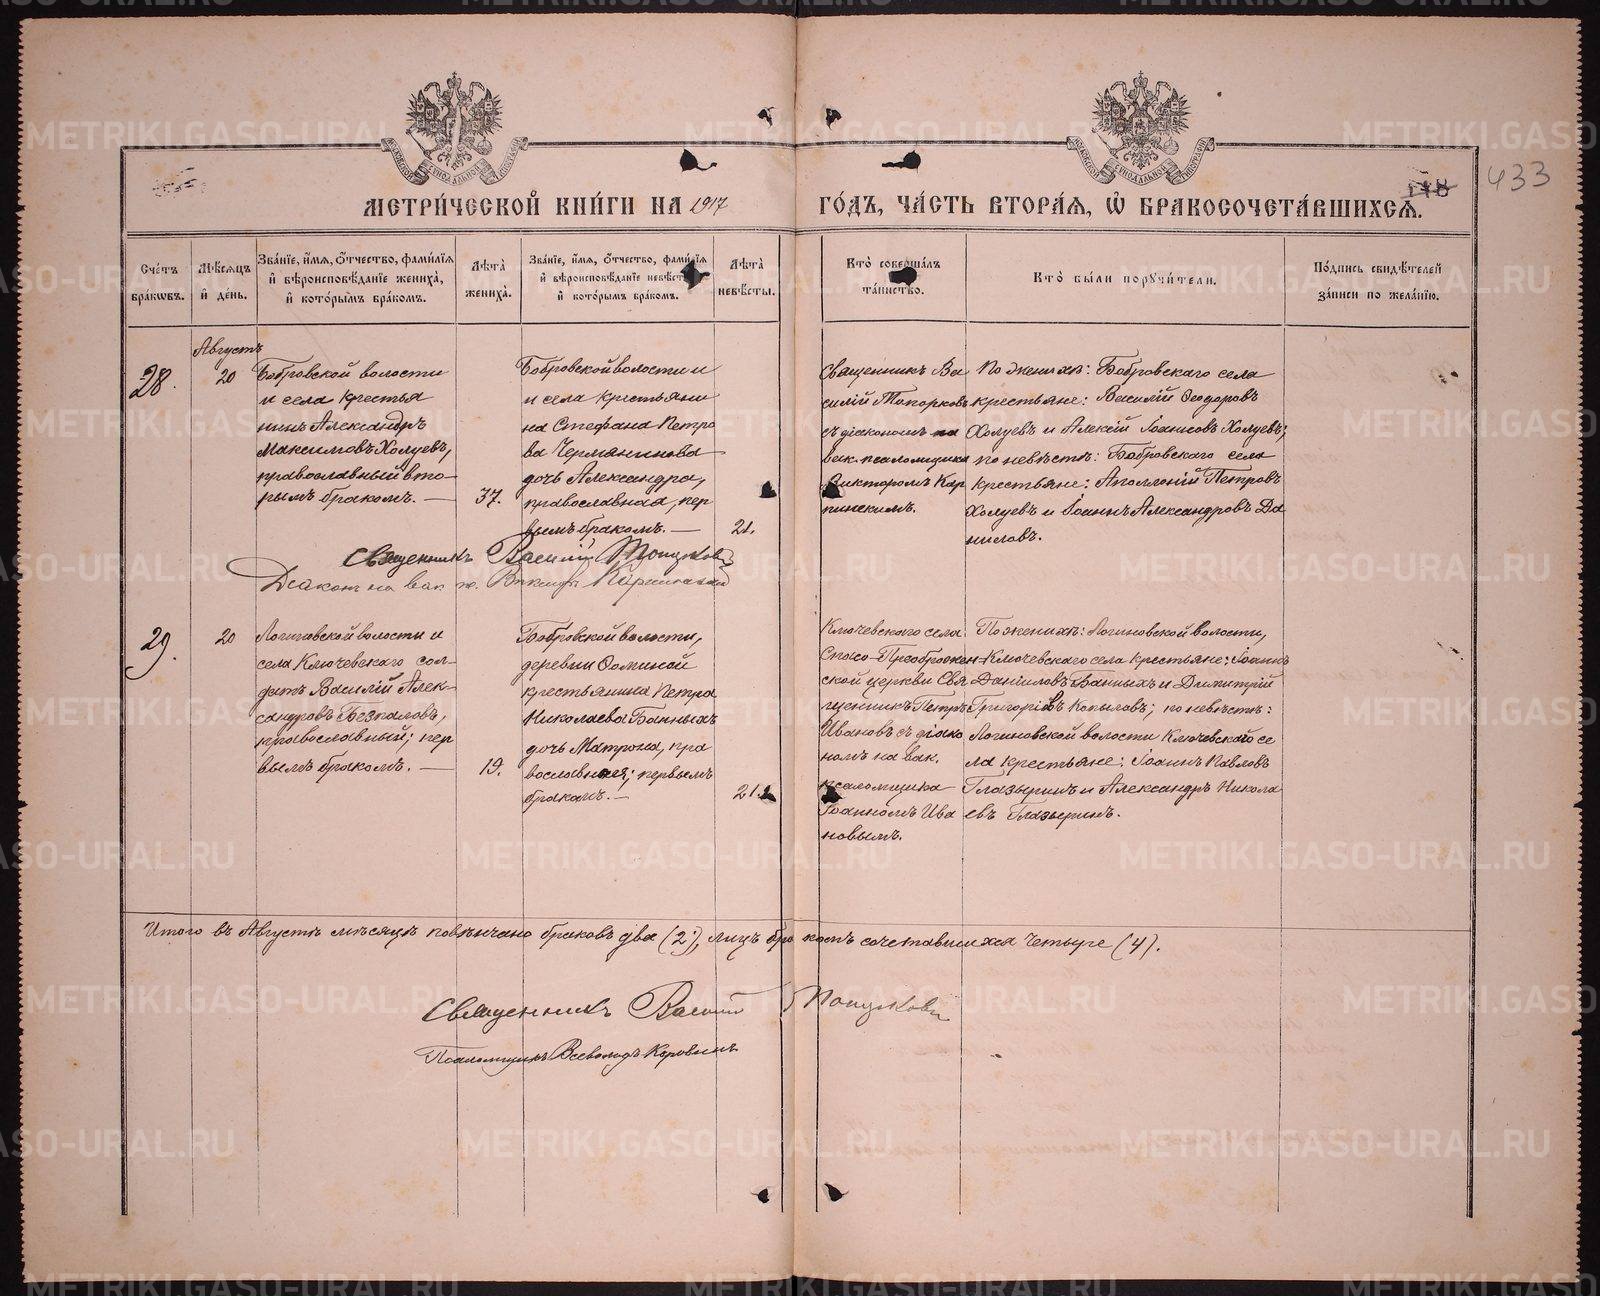 МЕТРИ́ЧЕСКОЙ КНИ́ГИ НА 1917 ГО́ДЪ, ЧА́СТЬ ВТОРА́Я, Ѡ БРАКОСОЧЕТА́ВШИХСЯ.
433
Сче́тъ бра́кѡвъ.
Мѣ́сяцъ и҆ де́нь.
Зва́нїе, и҆́мя, ѻ҆́тчество, фами́лїя и҆ вѣроисповѣ́данїе жениха̀, и҆ кото́рымъ бра́комъ.
Лѣ́та жениха̀.
Зва́нїе, и҆́мя, ѻ҆́тчество, фами́лїя и҆ вѣроисповѣ́данїе невѣ́сты, и҆ кото́рымъ бра́комъ.
Лѣ́та невѣ́сты.
Кто̀ соверша́лъ та́инство.
Кто̀ бы́ли порꙋчи́тели.
По́дпись свидѣ́телей за́писи по жела́нїю.
Августъ
28.
20
Бобровской волости
и села крестья
нинъ Александръ
Максимовъ Холуевъ,
православный вто-
рымъ бракомъ. —
37.
Бобровской волости и
и села крестьяни
на Стефана Петро
ва Чермянинова
дочь Александра,
православная, пер
вымъ бракомъ. —
21.
Священникъ Ва
силій Топорковъ
съ діакономъ на
вак. псаломщика
Викторомъ Кар
пинскимъ.
По женихѣ: Бобровскаго села
крестьяне: Василій Ѳеодоровъ
Холуевъ и Алексій Іоанновъ Холуевъ;
по невѣстѣ: Бобровскаго села
крестьяне: Аполлоній Петровъ
Холуевъ и Іоаннъ Александровъ Да
ниловъ.
Священникъ Василій Топорковъ
Діаконъ на вак. пс. Викторъ Карпинскій
29.
20
Логиновской волости и
села Ключевскаго сол-
датъ Василій Алек-
сандровъ Безпаловъ,
православный; пер
вымъ бракомъ. —
19.
Бобровской волости,
деревни Ѳоминой
крестьянина Петра
Николаева Банныхъ
дочь Матрона, пра
вославная; первымъ
бракомъ. —
21.
Ключевскаго села
Спасо-Преображен-
ской церкви Свя
щенникъ Петръ
Ивановъ съ діако
номъ на вак.
псаломщика
Іоанномъ Ива
новымъ.
По женихѣ: Логиновской волости,
Ключевскаго села крестьяне: Іоаннъ
Даніиловъ Банныхъ и Димитрій
Григоріевъ Копыловъ; по невѣстѣ:
Логиновской волости Ключевскаго се
ла крестьяне: Іоаннъ Павловъ
Глазыринъ и Александръ Никола
евъ Глазыринъ.
Итого въ Августѣ мѣсяцѣ повѣнчано браковъ два (2), лицъ бракомъ сочетавшихся четыре (4).
Священникъ Василій Топорковъ
Псаломщикъ Всеволодъ Коровинъ
METRIKI.GASO-URAL.RU